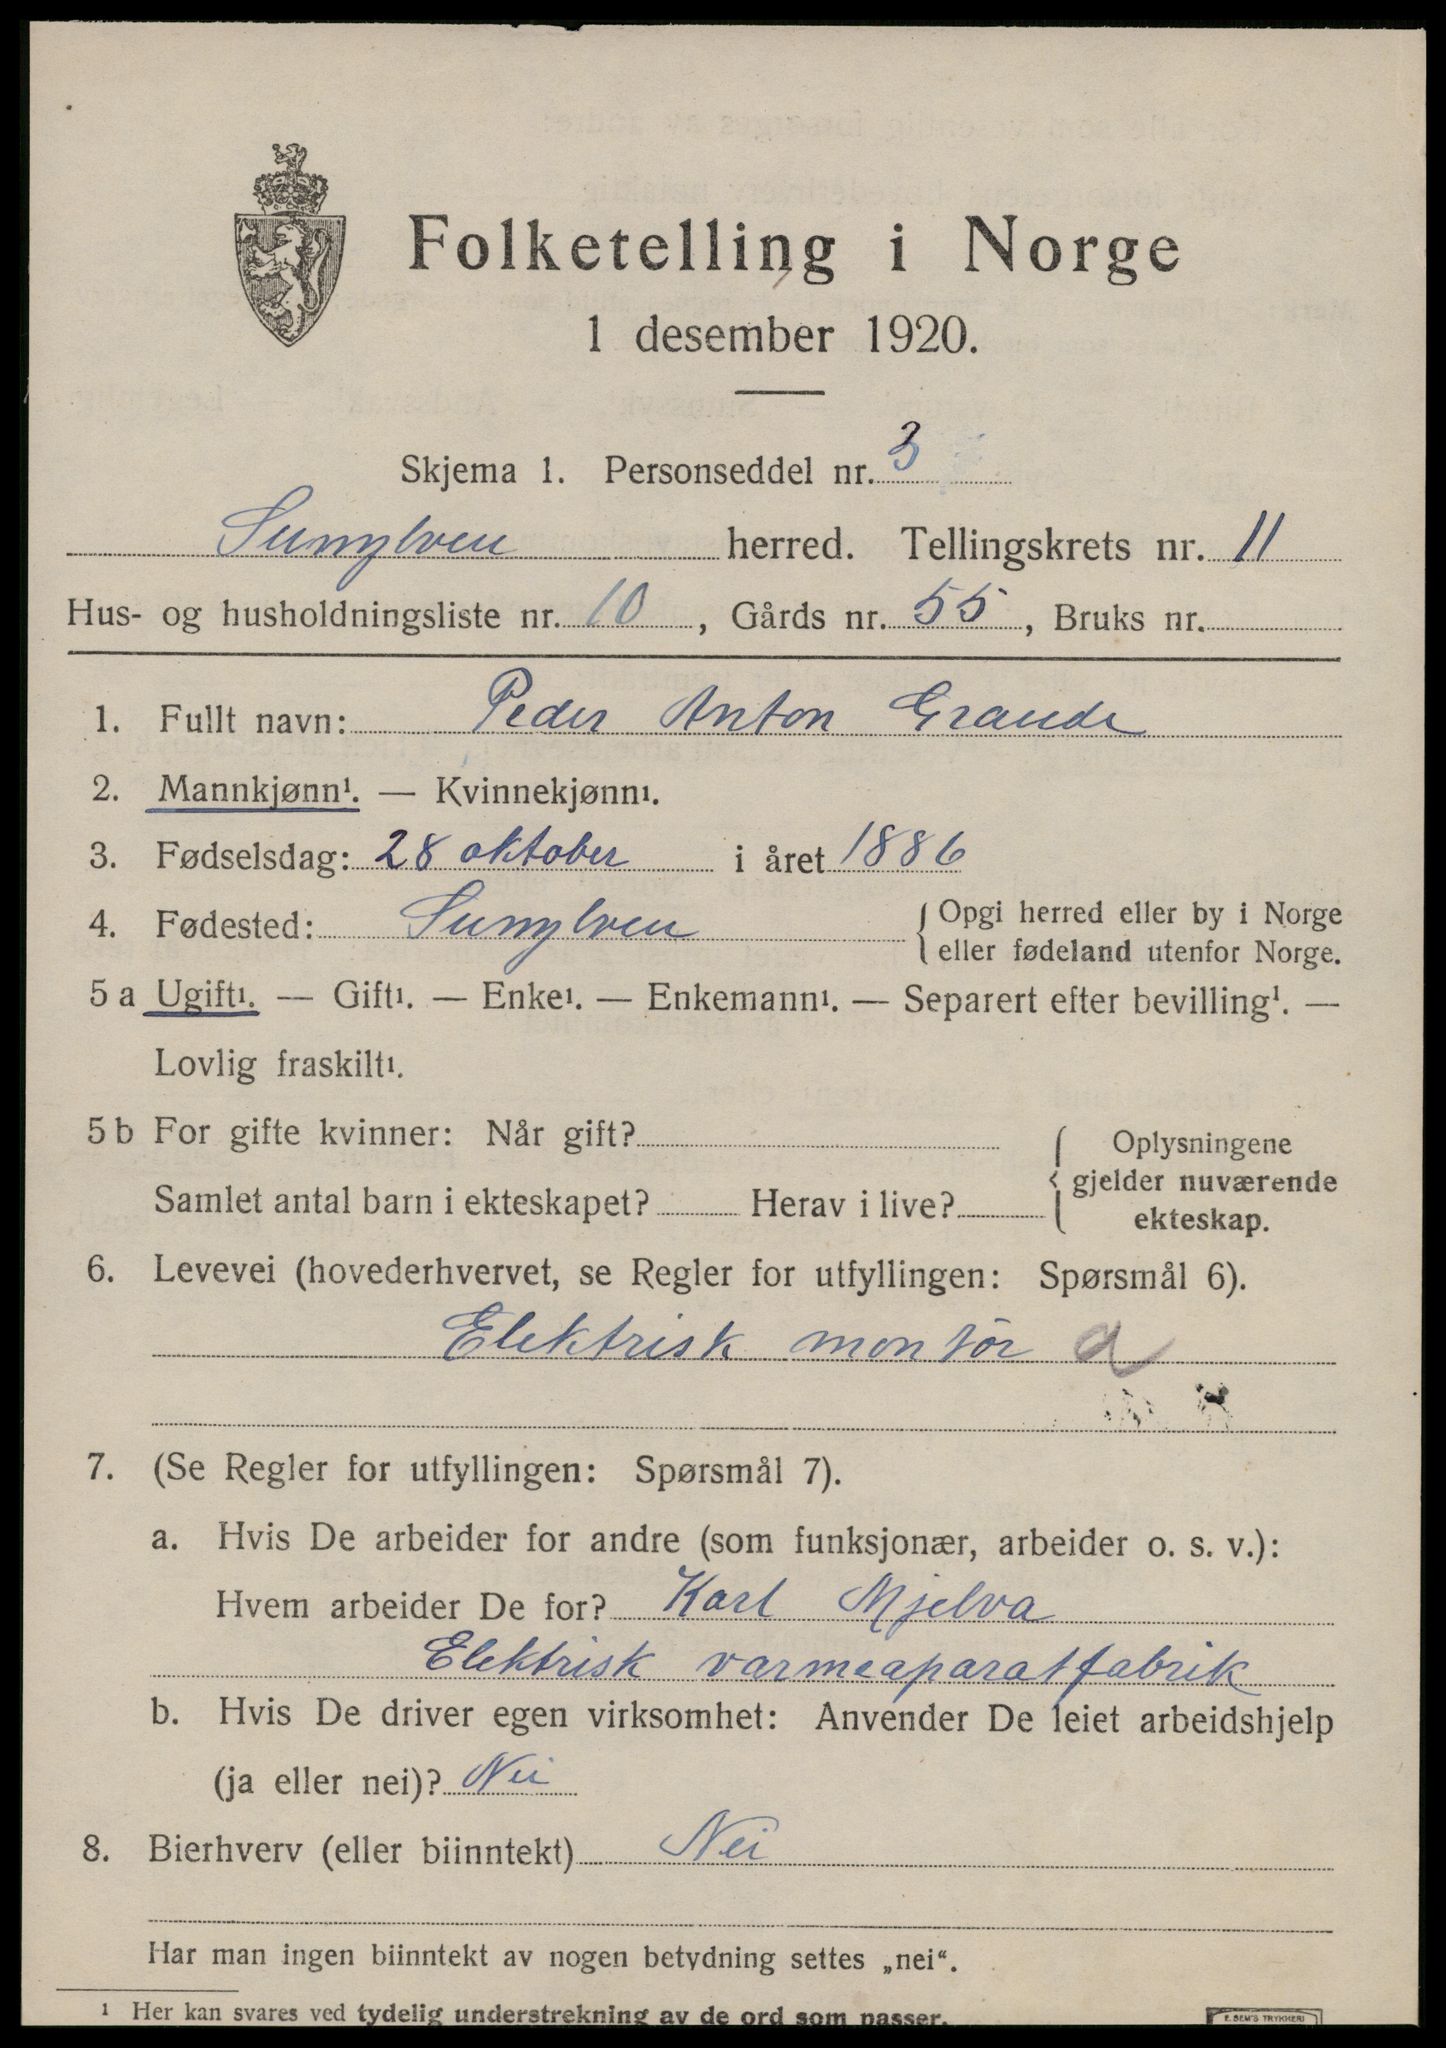 Folketelling i Norge
1 desember 1920.
Skjema 1. Personseddel nr. 3
Sunylven herred. Tellingskrets nr. 11
Hus- og husholdningsliste nr. 10, Gårds nr. 55, Bruks nr.
1. Fullt navn: Peder Anton Grande
2. Mannkjønn¹. — Kvinnekjønn¹.
3. Fødselsdag: 28 oktober i året 1886
4. Fødested: Sunylven { Opgi herred eller by i Norge
eller fødeland utenfor Norge.
5 a Ugift¹. — Gift¹. — Enke¹. — Enkemann¹. — Separert efter bevilling¹. —
Lovlig fraskilt¹.
5 b For gifte kvinner: Når gift? { Oplysningene
gjelder nuværende
Samlet antal barn i ekteskapet? Herav i live? ekteskap.
6. Levevei (hovederhvervet, se Regler for utfyllingen: Spørsmål 6).
Elektrisk montør a
7. (Se Regler for utfyllingen: Spørsmål 7).
a. Hvis De arbeider for andre (som funksjonær, arbeider o. s. v.):
Hvem arbeider De for? Karl Mjelva
Elektrisk varmeaparatfabrik
b. Hvis De driver egen virksomhet: Anvender De leiet arbeidshjelp
(ja eller nei)? Nei
8. Bierhverv (eller biinntekt) Nei
Har man ingen biinntekt av nogen betydning settes „nei“.
¹ Her kan svares ved tydelig understrekning av de ord som passer.
E. SEM'S TRYKKERI